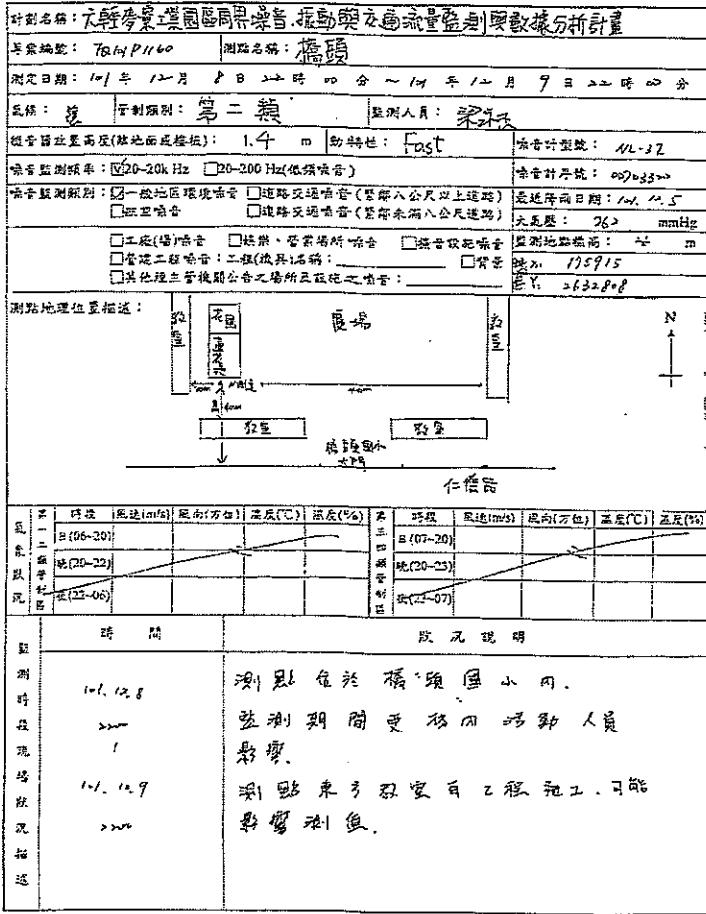 計劃名稱：六輕麥寮工業園區周界噪音.振動與交通流量監測與數據分析計畫
專案編號： 測點名稱：橋頭
測定日期：101 年 12 月 8 日 22 時 00 分 ～ 101 年 12 月 9 日 22 時 00 分
氣候： 管制類別：第二類 監測人員：
聲音器放置高度(離地面或樓板)： 1.4 m 動特性：Fast 噪音計型號：NL-32
噪音監測頻率：☑20~20k Hz □20~200 Hz(低頻噪音) 噪音計序號：00703320
噪音監測類別：☑一般地區環境噪音 □道路交通噪音(緊鄰八公尺以上道路) 最近降雨日期：101.12.5
□航空噪音 □道路交通噪音(緊鄰未滿八公尺道路) 大氣壓：762 mmHg
□工廠(場)噪音 □娛樂、營業場所噪音 □擴音設施噪音 監測地點標高： m
□營建工程噪音：工程(機具)名稱： □背景 175915
□其他經主管機關公告之場所及設施之噪音： 2632808
測點地理位置描述： 教室 花圃 廣場 教室 N
教室 教室
橋頭國小
大門
仁德路
氣象狀況 第一二類管制區 時段 風速(m/s) 風向(方位) 溫度(℃) 濕度(%) 第三四類管制區 時段 風速(m/s) 風向(方位) 溫度(℃) 濕度(%)
日(06~20) 日(07~20)
晚(20~22) 晚(20~23)
夜(22~06) 夜(23~07)
監測時段現場狀況描述 時間 狀況說明
101.12.8 測點位於橋頭國小內.
2200 監測期間受校內活動人員
影響.
101.12.9 測點東方教室有工程施工.可能
2200 影響測值.